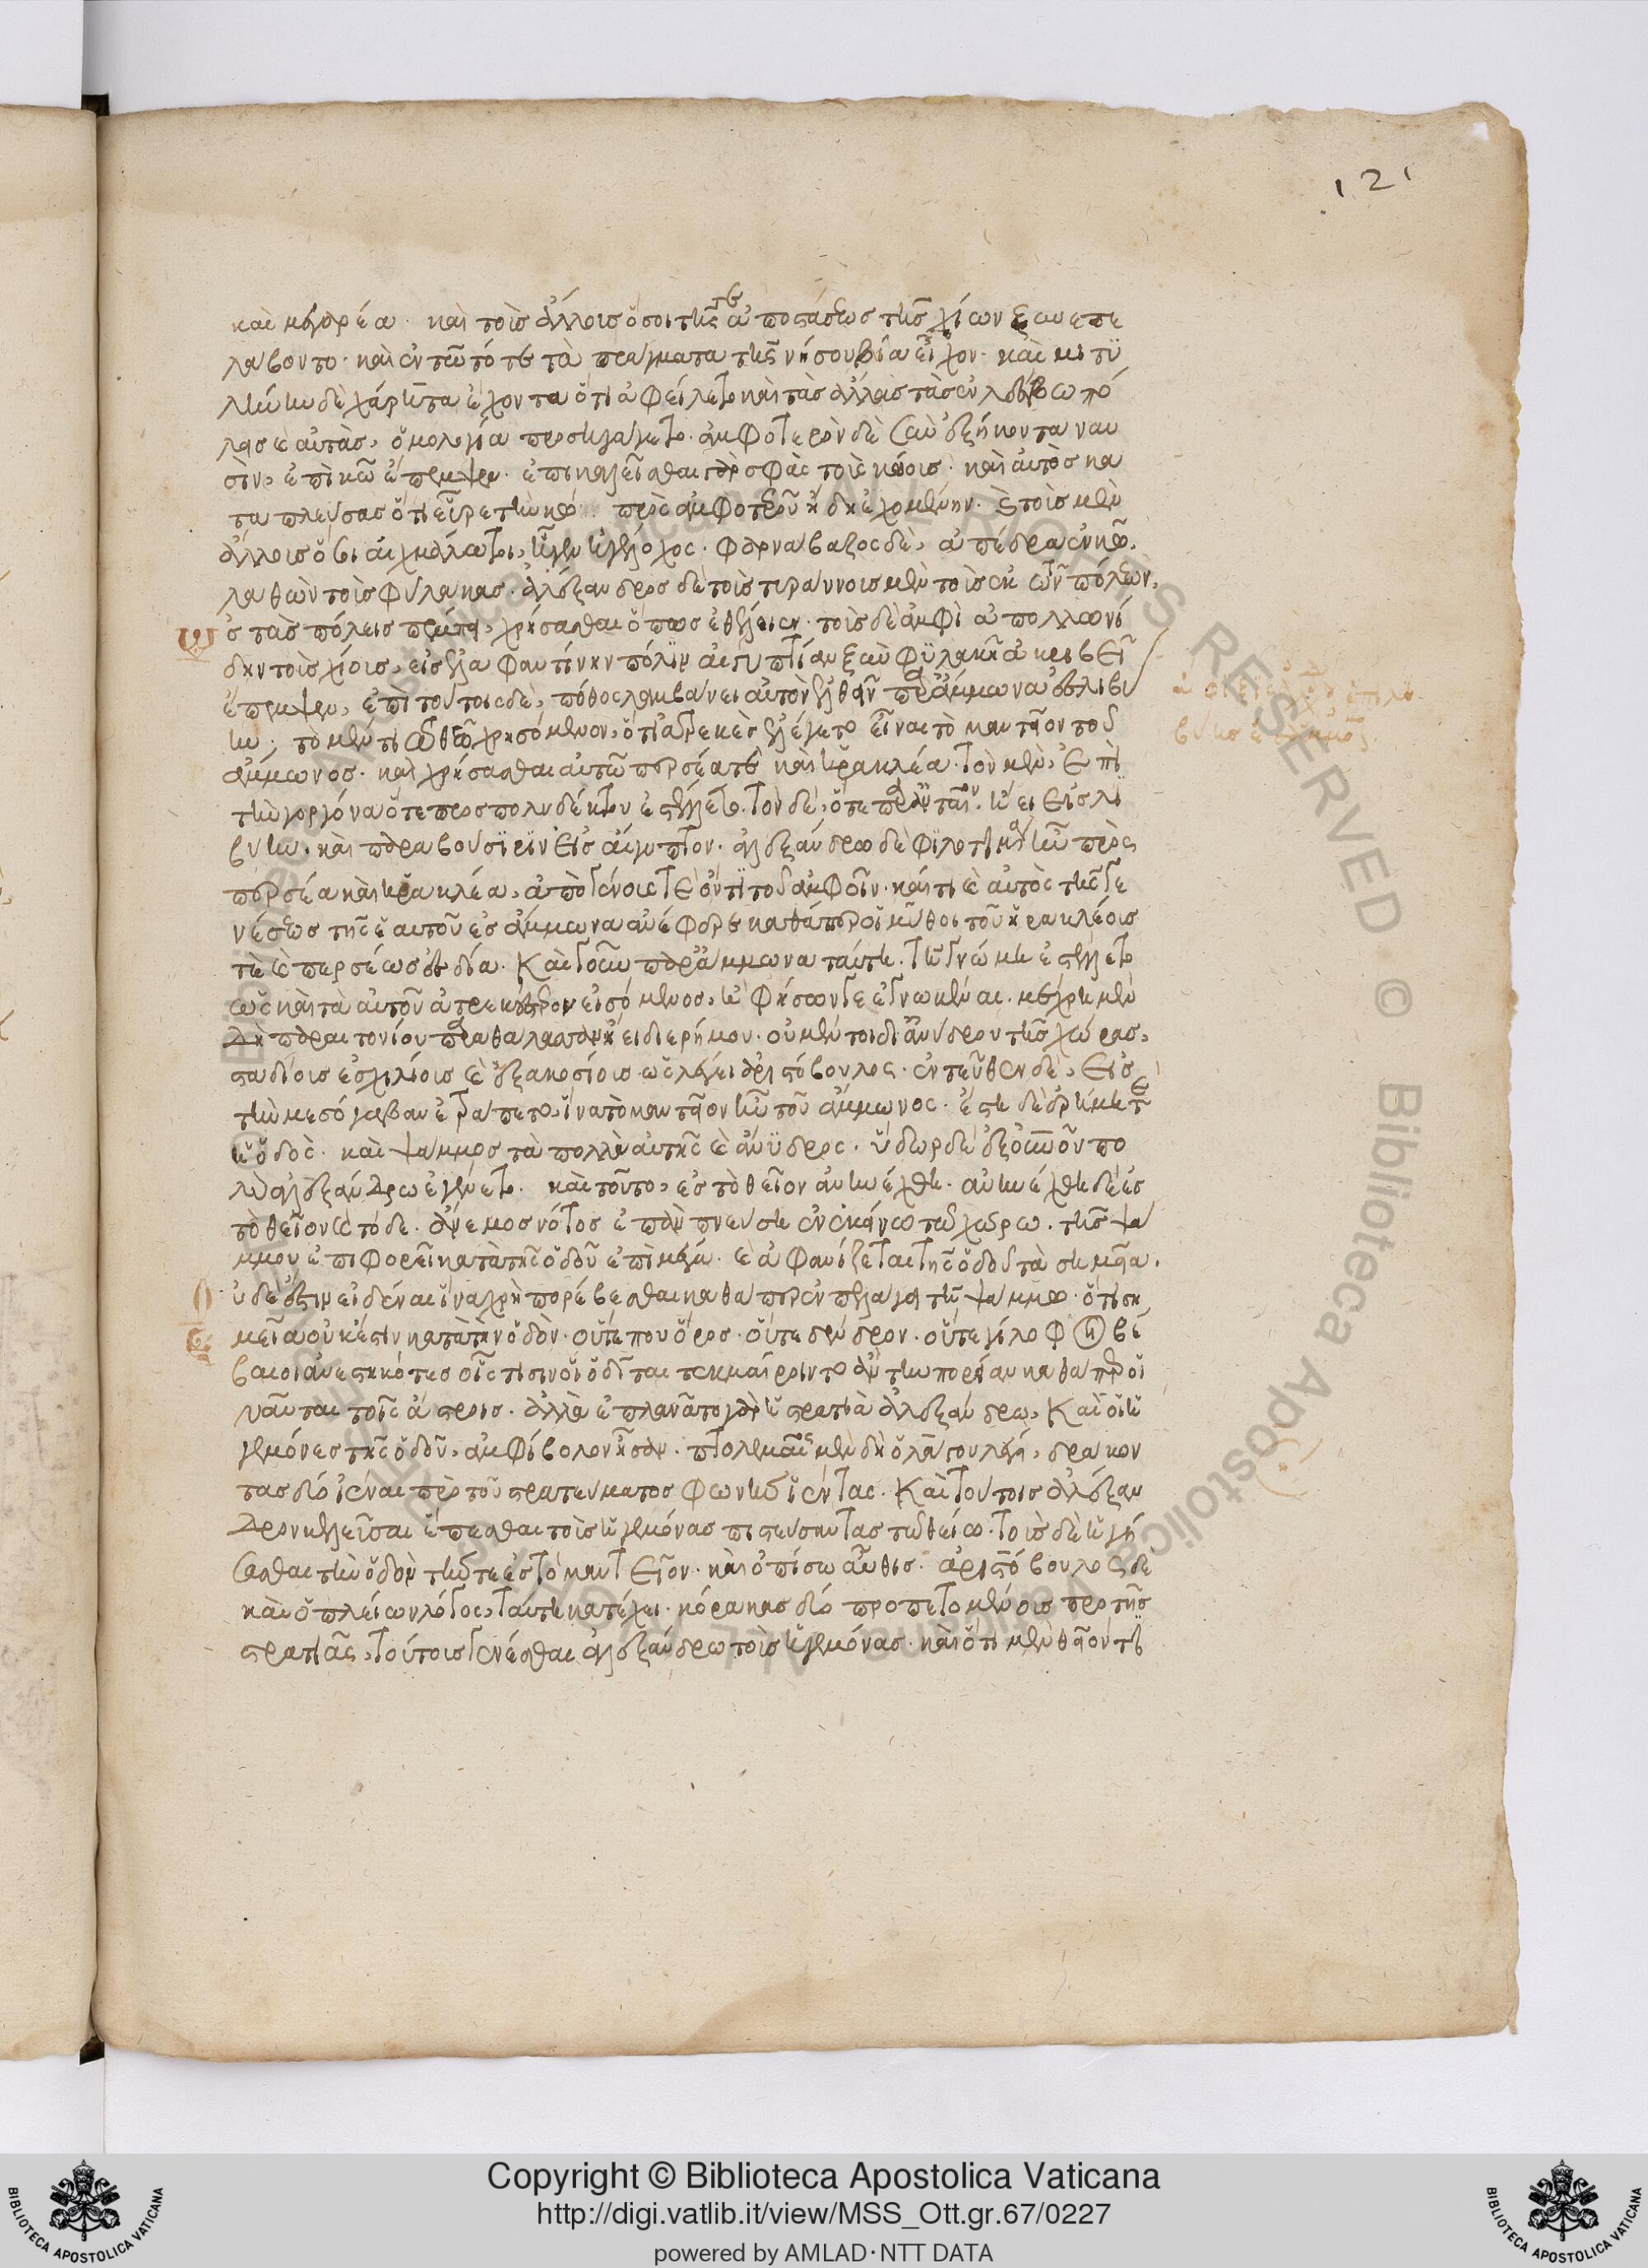 121
καὶ μεγαρέα· καὶ τοὶς ἄλλοις ὅσοι τῆς τε ἀποστάσεως τῆς χίων ξυνεπε
λάβοντο· καὶ ἐν τῶ τότε τὰ πράγματα τῆς νήσου βία εἶχον· καὶ μιτυ
λήνην δὲ χάρητα ἔχοντα ὅτι ἀφείλετο καὶ τὰς ἄλλας τὰς ἐν λέσβω πό
λεις καὶ αὐτὰς, ὁμολογία προσηγάγετο· ἀμφοτερὸν δὲ σὺν ἑξήκοντα ναυ
σὶν, ἐπὶ κῶ ἔπεμψεν· ἐπικαλεῖσθαι γὰρ σφὰς τοὶς κώοις· καὶ αὐτὸς κα
ταπλεύσας ὅτι εὗρε τὴν κῶ πρὸς ἀμφοτεροῦ ἤδη ἐχομένην· καὶ τοὶς μὲν
ἄλλοις ὅσοι αἰχμάλωτοι, ἦγεν ἡγέλοχος· φαρνάβαζος δὲ, ἀπέδρα ἐν κῶ,
λαθὼν τοὶς φύλακας· ἀλέξανδρος δὲ τοὶς τυράννοις μὲν τοὶς ἐκ τῶν πόλεων,
ἐς τὰς πόλεις πέμπει, χρήσασθαι ὅπως ἐθέλοιεν· τοὶς δὲ ἀμφὶ ἀπολλωνί
δην τοὶς χίοις, εἰς ἐλεφαντίνην πόλιν αἰγυπτίαν ξὺν φυλακῆ ἀκριβεῖ
ἔπεμψεν, ἐπὶ τούτοις δὲ, πόθος λαμβάνει αὐτὸν ἐλθεῖν παρ' ἄμμωνα ἐς λιβύ
ην, τὸ μέν τι τῶ θεῶ χρησόμενον, ὅτι ἀτρεκὲς ἐλέγετο εἶναι τὸ μαντεῖον τοῦ
ἄμμωνος· καὶ χρήσασθαι αὐτῶ περσέα τε καὶ ἡρακλέα· τὸν μὲν, ἐπὶ
τὴν γοργόνα ὅτε προς πολυδέκτου ἐστέλλετο· τὸν δὲ, ὅτε παρ' ἀνταῖον ἤει εἰς λι
βύην, καὶ παρὰ βούσιριν εἰς αἴγυπτον· ἀλεξάνδρω δὲ φιλοτιμία ἦν πρὸς
περσέα καὶ ἡρακλέα, ἀπὸ γένους τε ὄντι τοῦ ἀμφοῖν· καί τι καὶ αὐτὸς τῆς γε
νέσεως τῆς ἑαυτοῦ ἐς ἄμμωνα ἀνέφερε καθάπερ οἱ μῦθοι τοῦ ἡρακλέοις
τὲ καὶ περσέως ἐς δία· καὶ γοῦν παρ' ἄμμωνα ταύτη τῆ γνώμη ἐστέλλετο
ὡς καὶ τὰ αὐτοῦ ἀτρεκέστερον εἰσόμενος, ἢ φήσων γε ἐγνωκέναι· μέχρι μὲν
δὴ παραιτονίου παρὰ θάλασσαν ἤει δι ἐρήμου· οὐ μέντοι δι' ἀνύδρου τῆς χώρας,
σταδίοις ἐς χιλίοις καὶ ἑξακοσίοις ὡς λέγει ἀριστόβουλος· ἐντεῦθεν δὲ, εἰς
τὴν μεσόγαιαν ἐτράπετο, ἵνα τὸ μαντεῖον ἦν τοῦ ἄμμωνος· ἔστι δὲ ἐρήμη τε
ἡ ὁδὸς· καὶ ψάμμος τὰ πολλὰ αὐτῆς καὶ ἄνυδρος· ὕδωρ δὲ ἐξ οὐρανοῦ πο
λὺ ἀλεξάνδρω ἐγένετο· καὶ τοῦτο, ἐς τὸ θεῖον ἀνηνέχθη· ἀνηνέχθη δὲ ἐς
τὸ θεῖον καὶ τόδε· ἄνεμος νότος ἐπὰν πνεύση ἐν ἐκείνω τῶ χώρω, τῆς ψά
μμου ἐπιφορεῖ κατὰ τῆς ὁδοῦ ἐπὶ μέγα· καὶ ἀφανίζεται τῆς ὁδοῦ τὰ σημεῖα,
οὐδέ ἐστιν εἰδέναι ἵνα χρὴ πορεύεσθαι καθάπερ ἐν πελάγει τῆ ψάμμω· ὅτι ση
μεῖα οὐκ ἔστιν κατὰ τὴν ὁδὸν· οὔτέ που ὄρος· οὔτε δένδρον· οὔτε γήλοφοι βέ
βαιοι ἀνεστηκότες οἷς τισιν οἱ ὁδῖται τεκμαίροιντο ἂν τὴν πορείαν καθάπερ οἱ
ναῦται τοῖς ἄστροις· ἀλλὰ ἐπλανᾶτο γὰρ ἡ στρατιὰ ἀλεξάνδρω, καὶ οἱ ἡ
γεμόνες τῆς ὁδοῦ, ἀμφίβολον ἦσαν· πτολεμαῖος μὲν δὴ ὁ λάγου λέγει, δράκον
τας δύο ἰέναι πρὸ τοῦ στρατεύματος φωνὴν ἱέντας· καὶ τούτοις ἀλέξαν
δρον κελεῦσαι ἕπεσθαι τοὶς ἡγεμόνας πιστεύσαντας τῶ θείω· τοὶς δὲ ἡγή
σασθαι τὴν ὁδὸν τήν τε ἐς τὸ μαντεῖον· καὶ ὀπίσω αὖθις· ἀριστόβουλος δὲ
καὶ ὁ πλείων λόγος, ταύτη κατέχει· κόρακας δύο προπετομένοις πρὸ τῆς
στρατιᾶς, τούτοις γενέσθαι ἀλεξάνδρω τοὶς ἡγεμόνας· καὶ ὅτι μὲν θεῖόν τι
Copyright © Biblioteca Apostolica Vaticana
http://digi.vatlib.it/view/MSS_Ott.gr.67/0227
powered by AMLAD·NTT DATA
BIBLIOTECA APOSTOLICA VATICANA
BIBLIOTECA APOSTOLICA VATICANA